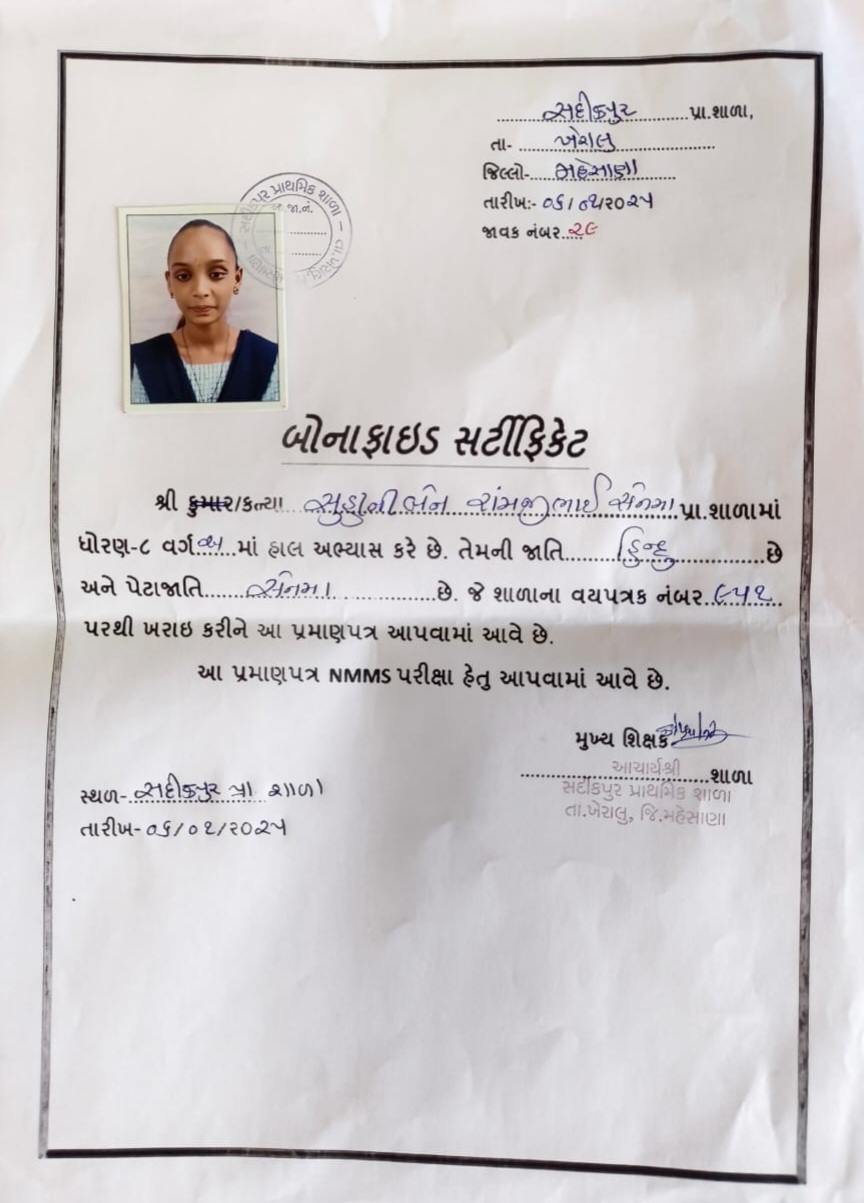 સદીકપુર પ્રા.શાળા,
તા- ખેરાલુ
જિલ્લો- મહેસાણા
તારીખ:- ૦૬/૦૧/૨૦૨૫
જાવક નંબર ૨૯
સદીકપુર પ્રાથમિક શાળા - તા.ખેરાલુ
જા.નં.
બોનાફાઇડ સર્ટીફિકેટ
શ્રી કુમાર/કન્યા સુહાનીબેન રામજીભાઈ સેનમા પ્રા.શાળામાં
ધોરણ-૮ વર્ગ અ માં હાલ અભ્યાસ કરે છે. તેમની જાતિ હિન્દુ છે
અને પેટાજાતિ સેનમા છે. જે શાળાના વયપત્રક નંબર ૯૫૧
પરથી ખરાઇ કરીને આ પ્રમાણપત્ર આપવામાં આવે છે.
આ પ્રમાણપત્ર NMMS પરીક્ષા હેતુ આપવામાં આવે છે.
મુખ્ય શિક્ષક
આચાર્યશ્રી શાળા
સદીકપુર પ્રાથમિક શાળા
તા.ખેરાલુ, જિ.મહેસાણા
સ્થળ- સદીકપુર પ્રા શાળા
તારીખ- ૦૬/૦૧/૨૦૨૫